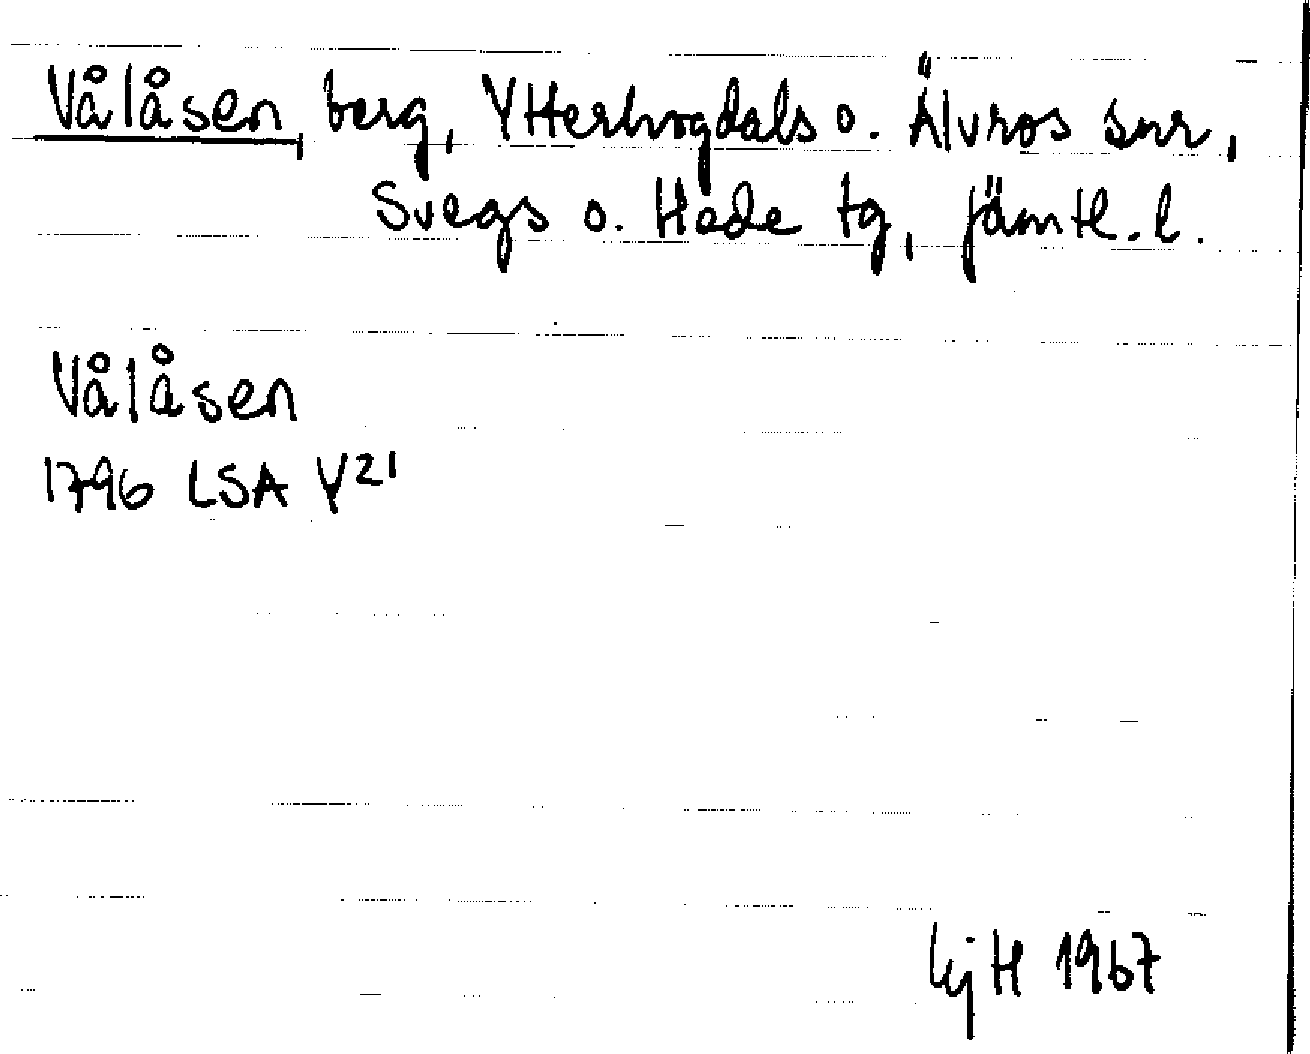 Vålåsen berg, Ytterhogdals o. Älvros snr,
Svegs o. Hede tg, Jämtl. l.
Vålåsen
1796 LSA Y21
H 1967